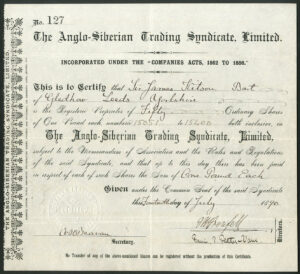 No. 127
The Anglo-Siberian Trading Syndicate, Limited.
INCORPORATED UNDER THE COMPANIES ACTS, 1862 TO 1886.
This is to Certify that Sir James Kitson Bart
of Gledhow Leeds Yorkshire
is the Registered Proprietor of Fifty Ordinary Shares
of One Pound each, numbered to both inclusive, in
The Anglo-Siberian Trading Syndicate, Limited,
subject to the Memorandum of Association and the Rules and Regulations
of the said Syndicate, and that up to this day there has been paid
in respect of each of such Shares the Sum of One Pound Each
Given under the Common Seal of the said Syndicate
this day of July 1890.
Secretary.
No Transfer of any of the above-mentioned Shares can be registered without the production of this Certificate.
THE ANGLO-SIBERIAN TRADING SYNDICATE, LIMITED.